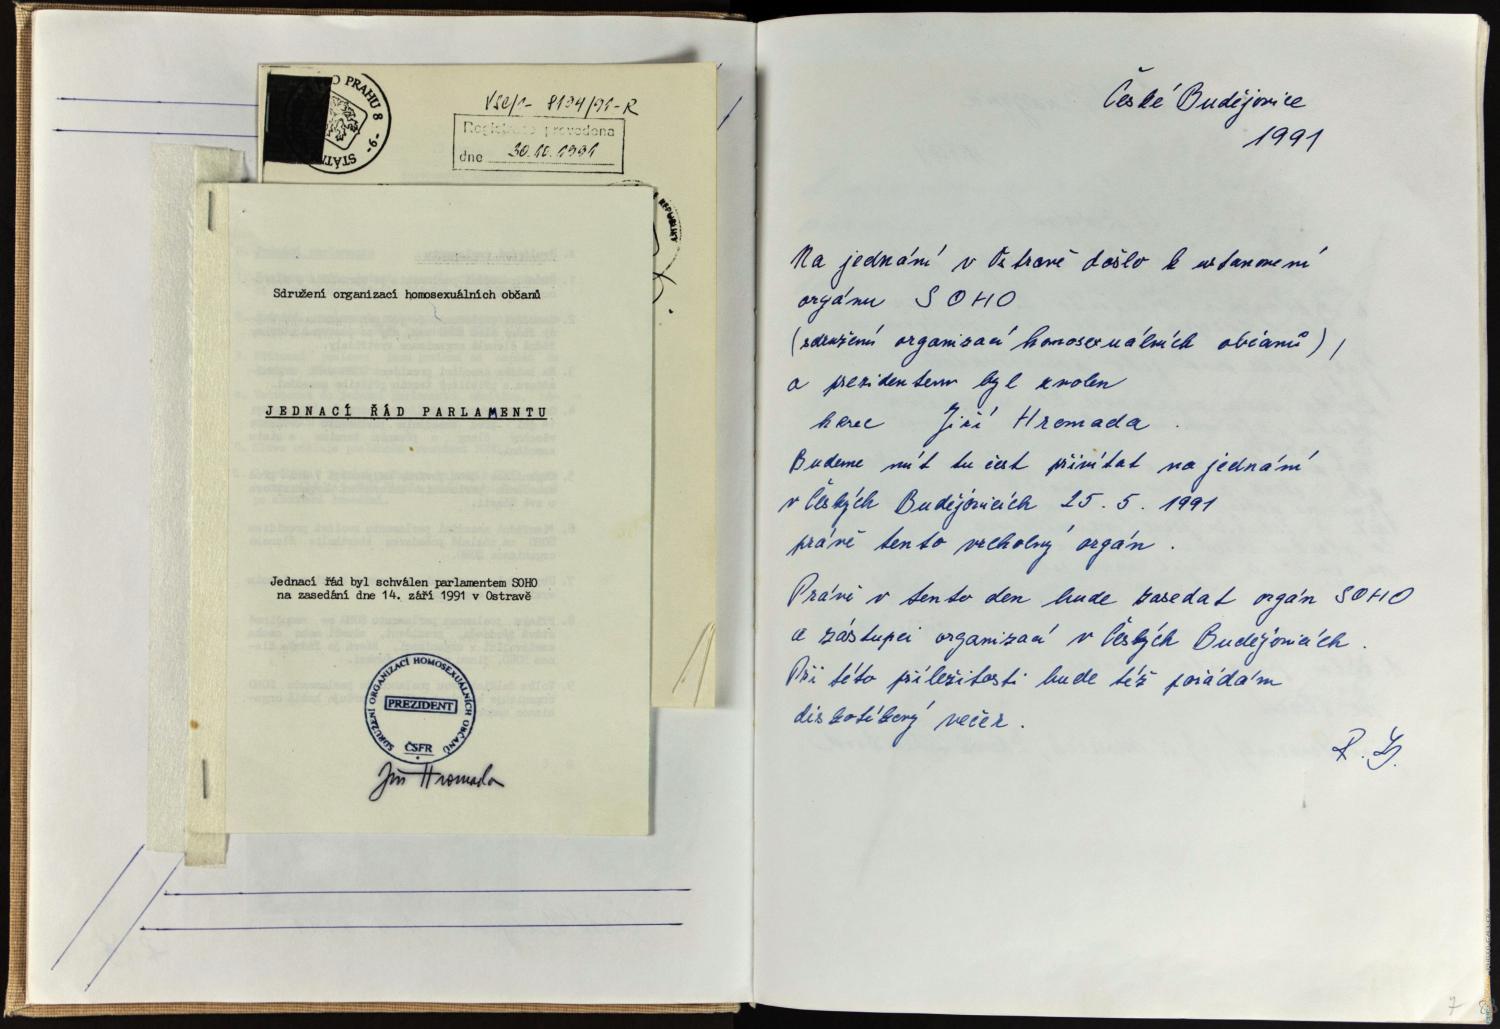 O PRAHU 8 -9-
STÁT
VSC/1- 8194/91-R
Registrace provedena
dne 30.10.1991
Sdružení organizací homosexuálních občanů
JEDNACÍ ŘÁD PARLAMENTU
Jednací řád byl schválen parlamentem SOHO
na zasedání dne 14. září 1991 v Ostravě
SDRUŽENÍ ORGANIZACÍ HOMOSEXUÁLNÍCH OBČANŮ
PREZIDENT
ČSFR
Jiří Hromada
České Budějovice
1991
Na jednání v Ostravě došlo k ustanovení
orgánu SOHO
(sdružení organizací homosexuálních občanů),
a prezidentem byl zvolen
herec Jiří Hromada.
Budeme mít tu čest přivítat na jednání
v Českých Budějovicích 25. 5. 1991
právě tento vrcholný orgán.
Právě v tento den bude zasedat orgán SOHO
a zástupci organizací v Českých Budějovicích.
Při této příležitosti bude též pořádám
diskotékový večer.
7